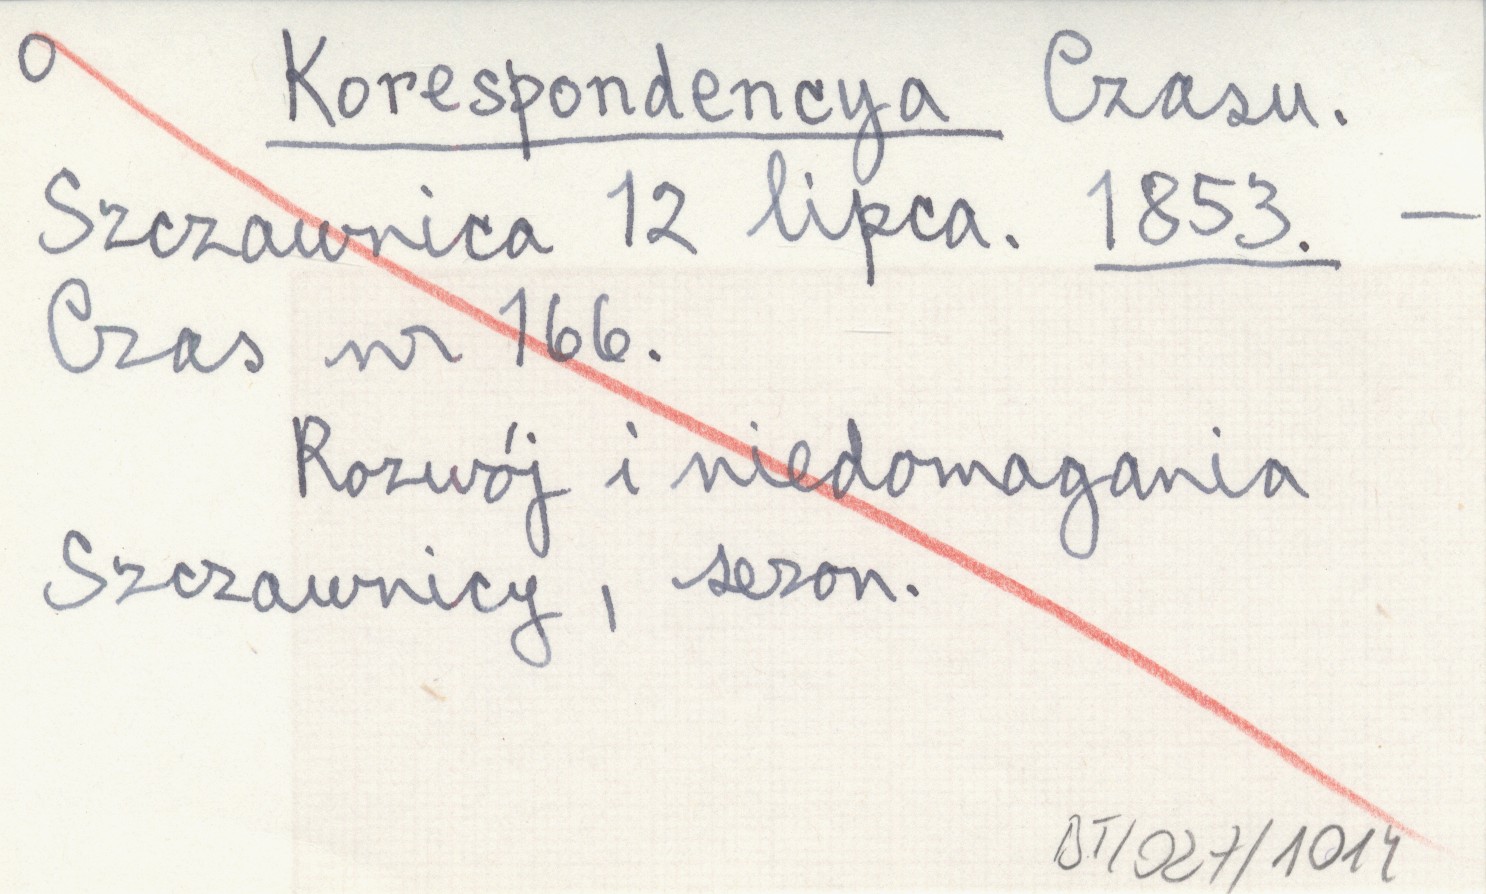 O Korespondencya Czasu.
Szczawnica 12 lipca. 1853. —
Czas nr 166.
Rozwój i niedomagania
Szczawnicy, sezon.
BT/027/1014